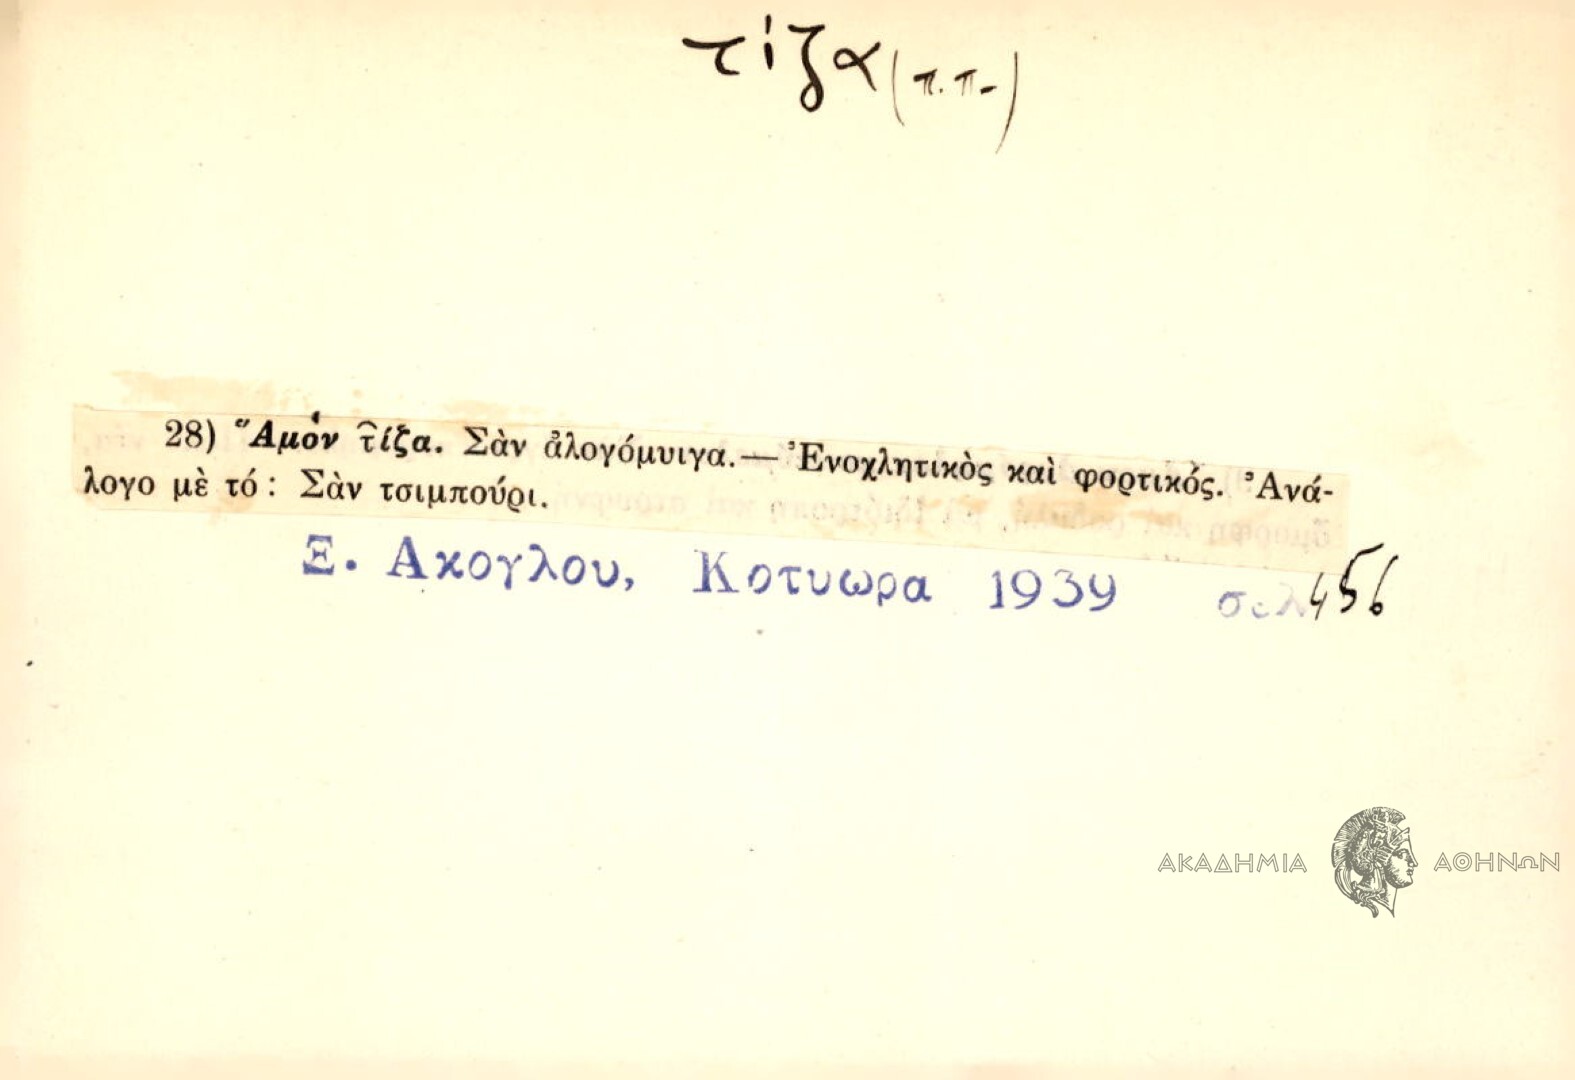 τίζα (π.π.)
28) Ἄμον τίζα. Σὰν ἀλογόμυιγα.— Ἐνοχλητικὸς καὶ φορτικός. Ἀνά-
λογο μὲ τό: Σὰν τσιμπούρι.
Ξ. Ακογλου, Κοτυωρα 1939 σελ 456
ΑΚΑΔΗΜΙΑ ΑΘΗΝΩΝ